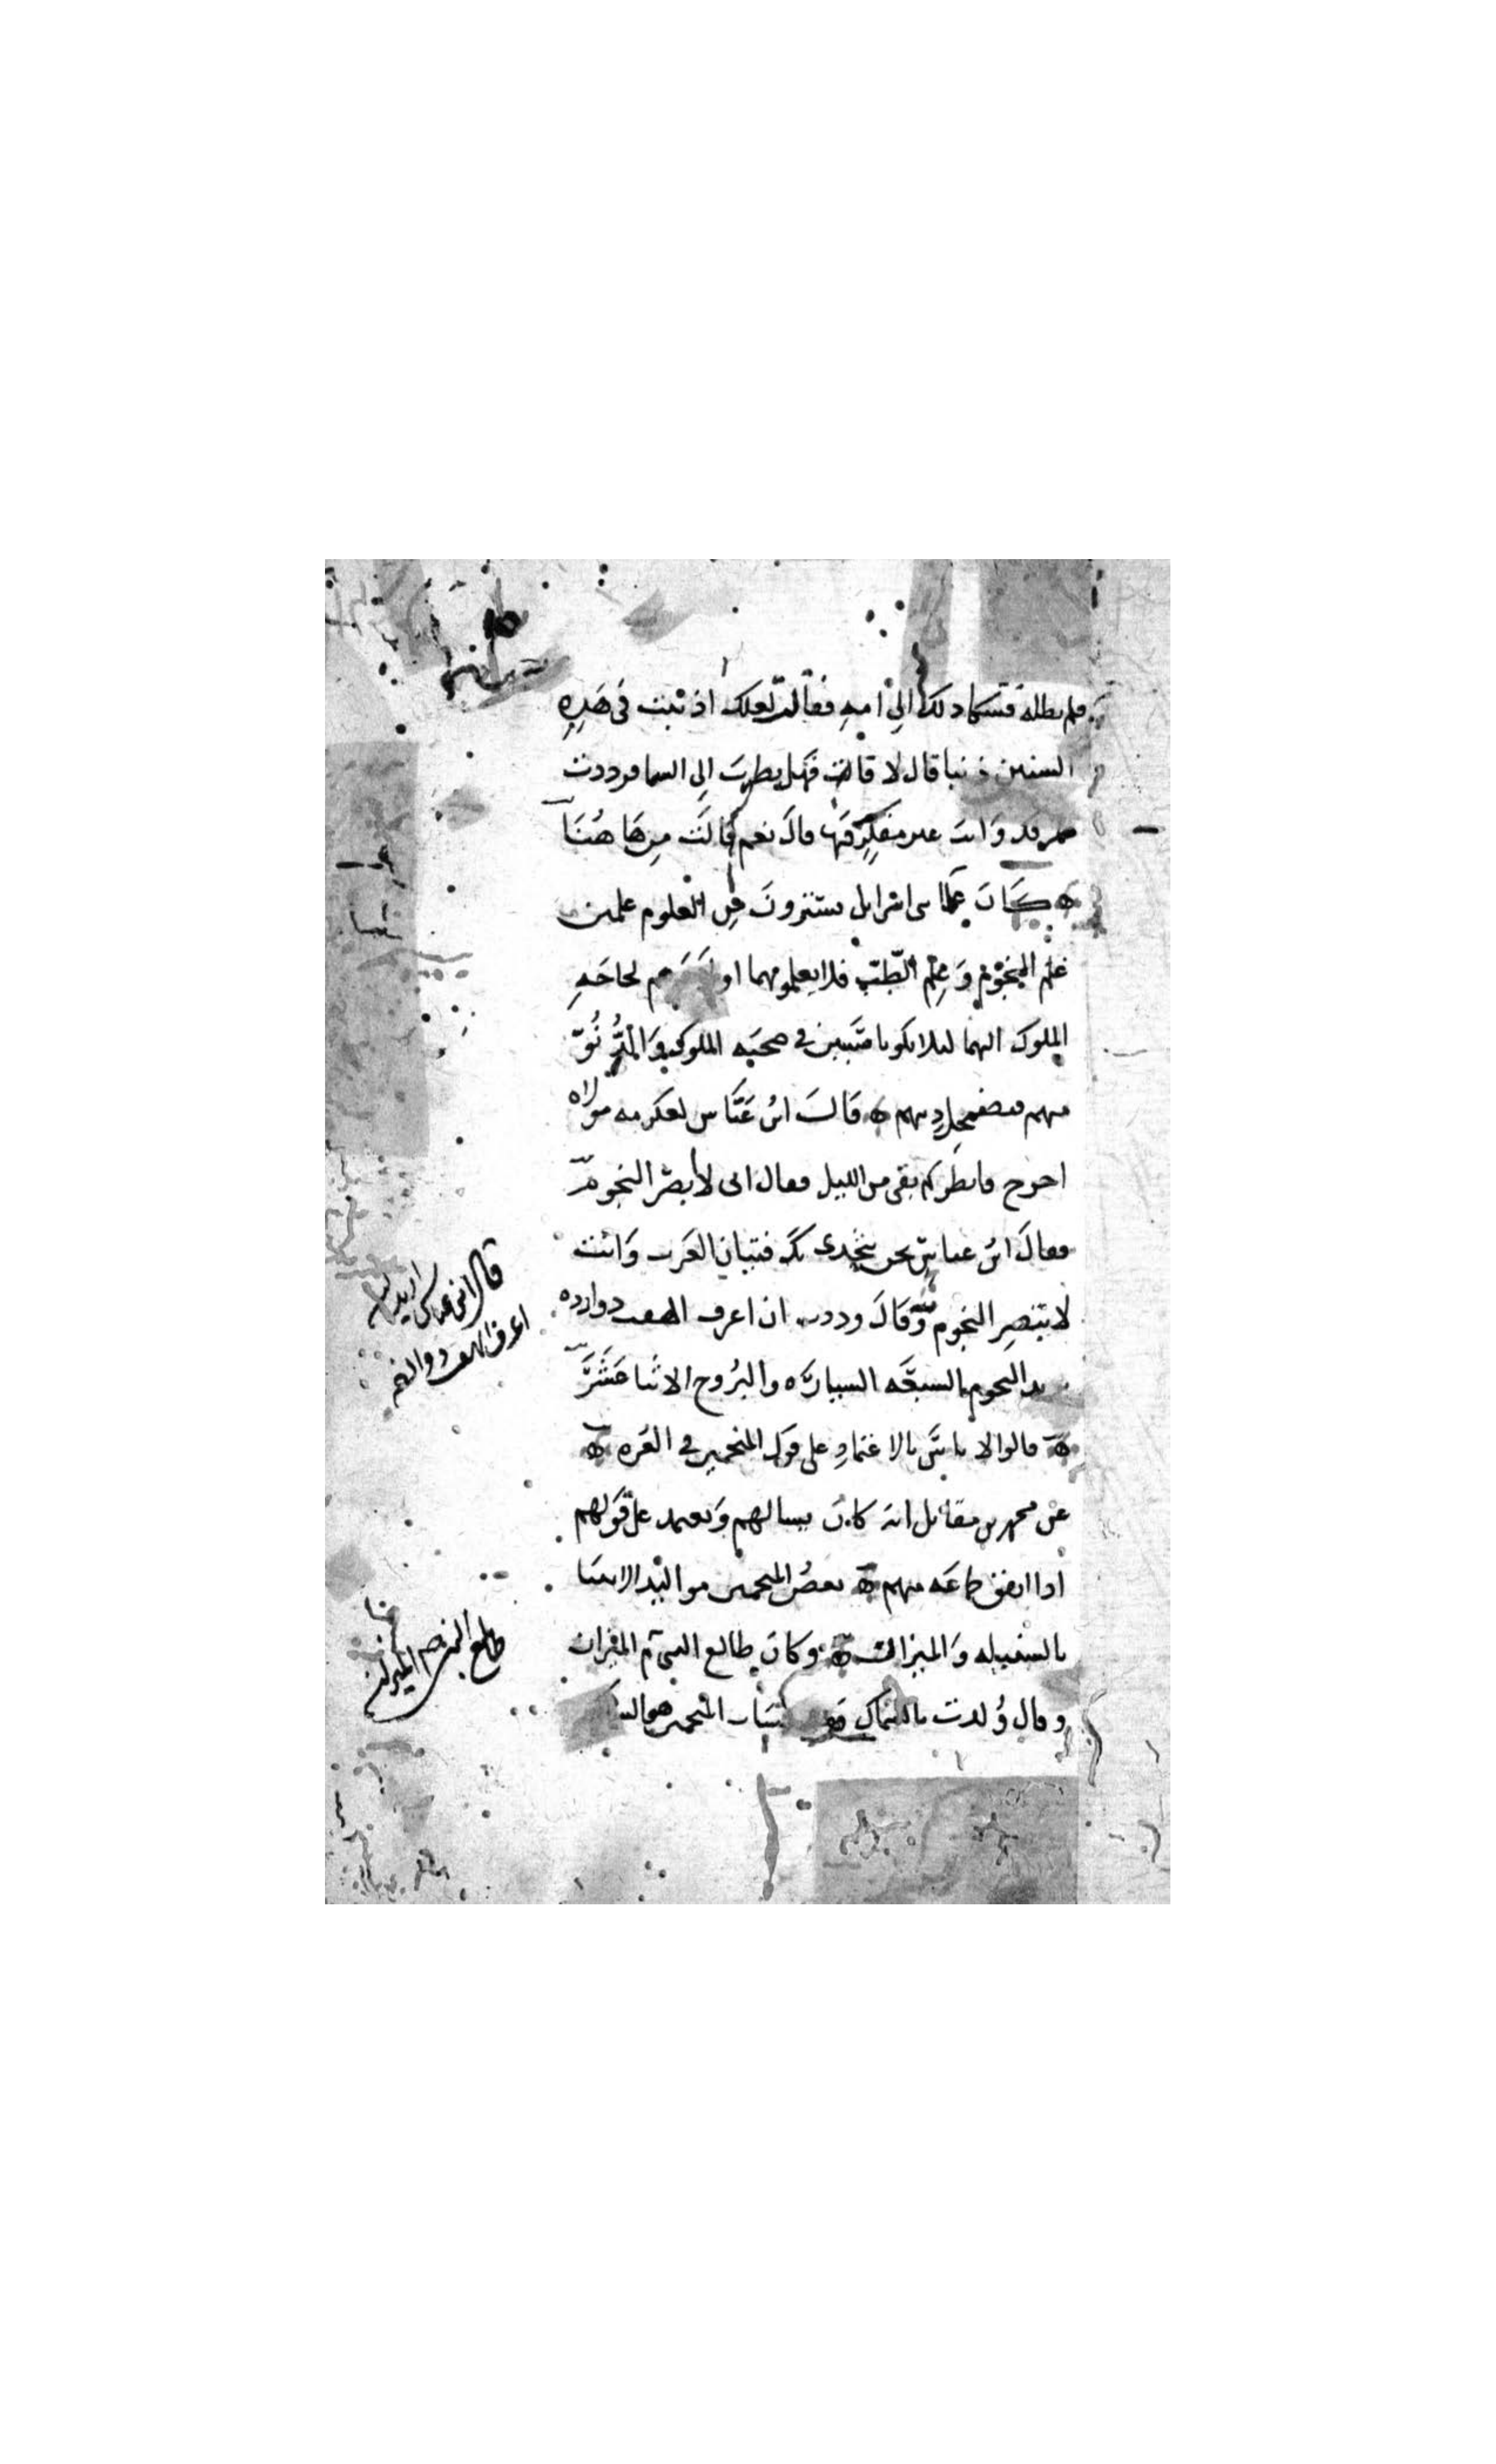 فلم تظله فشكا ذلك الى امه فقالت لعلك اذنبت في هذه
السنين ذنبا قال لا قالت فهل نظرت الى السما فرددت
طرفك وانت غير متفكر فيها قال نعم قالت من ها هنا
كان علما بني اسرايل يسترون من العلوم علمين
علم النجوم وعلم الطب فلا يعلمونهما اولادهم لحاجه
الملوك اليهما ليلا يكونا سببين في صحبه الملوك والدنو
منهم فيضمحل دينهم قال ابن عباس لعكرمه مولاه
اخرج فانظر كم بقي من الليل فقال اني لا ابصر النجوم
فقال ابن عباس نحن نتحدى بك فتيان العرب وانت
لا تبصر النجوم وقال وددت ان اعرف الهفت دوازده
يريد النجوم السبعه السياره والبروج الاثنا عشر
قالوا لا باس بالاعتماد على قول المنجمين في الغره
عن محمد بن مقاتل انه كان يسالهم ويعتمد على قولهم
اذا اتفق جماعه منهم بعض المنجمين مواليد الانبيا
بالسنبله والميزان وكان طالع النبي الميزان
وقال ولدت بالسماك حساب المنجمين
قال ابن عباس اريد ان
اعرف
طالع النبي الميزان